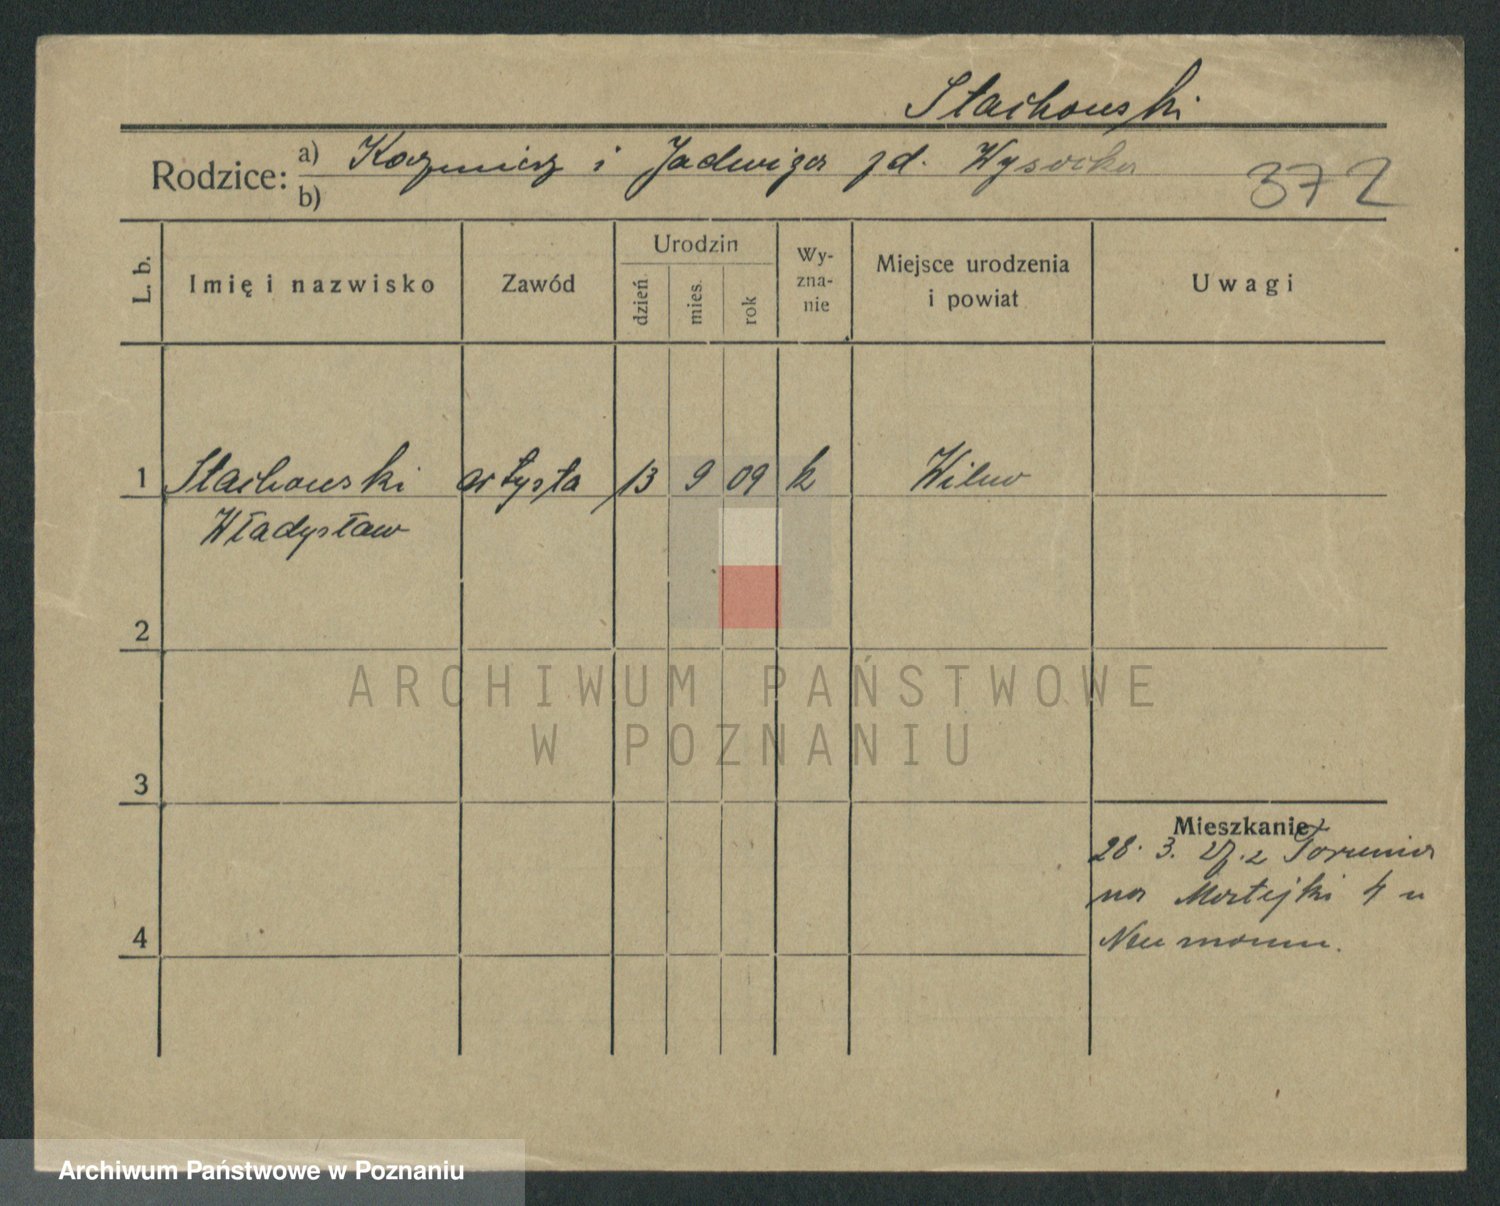 Stachowski
Rodzice: a) Kazmierz i Jadwiga zd. Wysocka
b)
372
L. b.
Imię i nazwisko
Zawód
Urodzin
dzień
mies.
rok
Wy-
zna-
nie
Miejsce urodzenia
i powiat
Uwagi
1 Stachowski artysta 13 9 09 k Wilno
Władysław
2
3
4
Mieszkanie
28. 3. z Torunia
na Matejki 4 u
Neumann.
ARCHIWUM PAŃSTWOWE
W POZNANIU
Archiwum Państwowe w Poznaniu